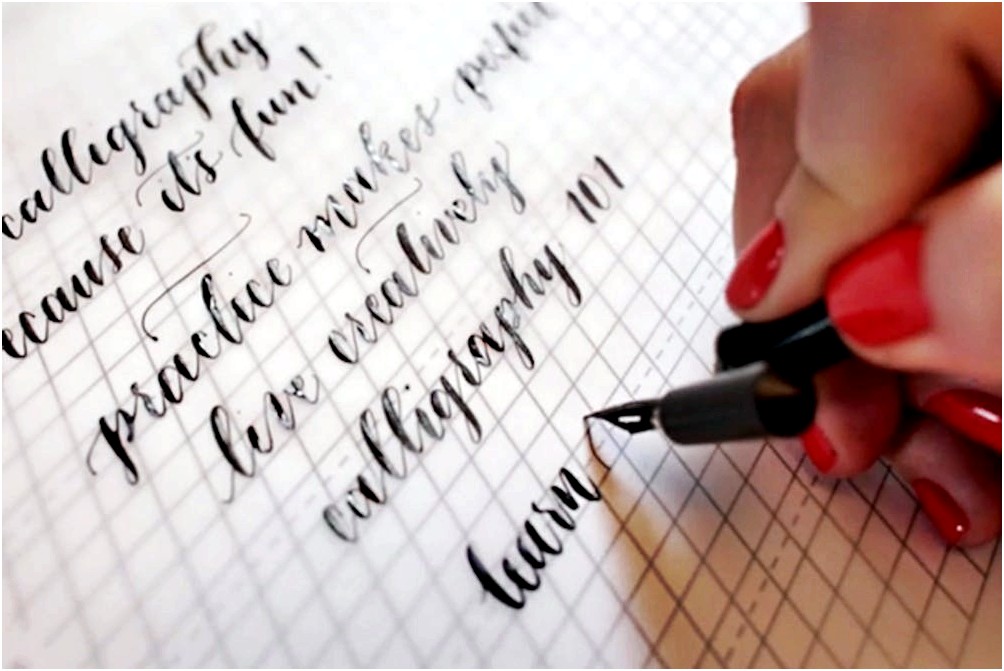 calligraphy
ecause it's fun!
practice makes perfect
live creatively
calligraphy 101
learn